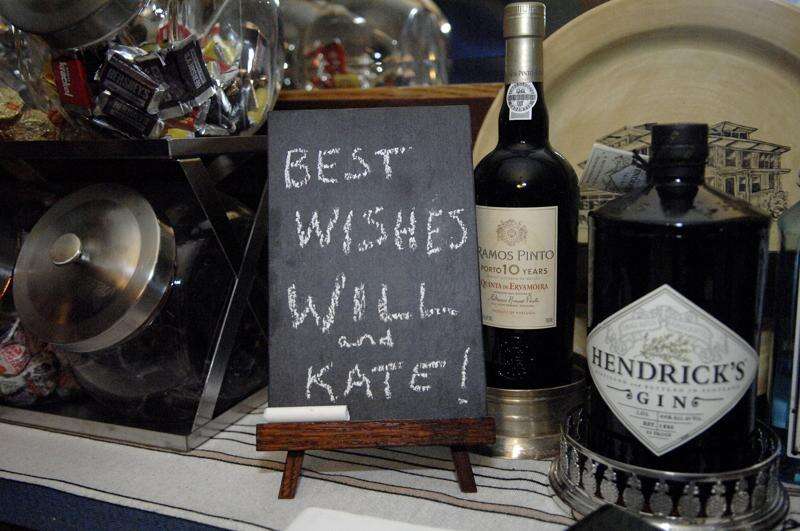 BEST
WISHES
WILL
and
KATE!
RAMOS PINTO
PORTO 10 YEARS
QUINTA DE ERVAMOIRA
HENDRICK'S
GIN
HERSHEY'S